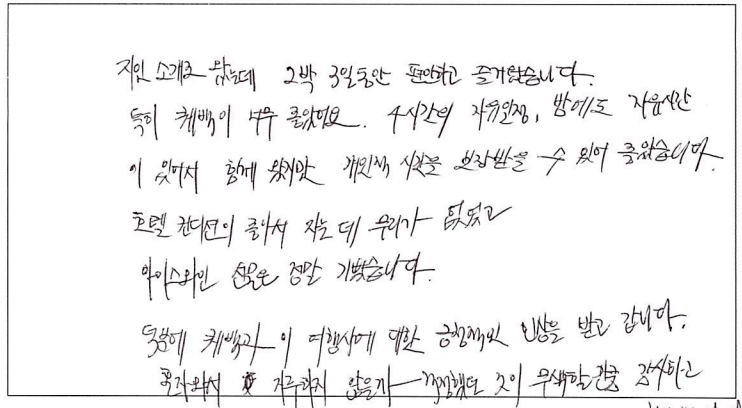 지인 소개로 왔는데 2박 3일동안 편안하고 즐거웠습니다.
특히 퀘백이 너무 좋았어요. 4시간의 자유일정, 밤에도 자유시간
이 있어서 함께 왔지만 개인적 시간을 보장받을 수 있어 좋았습니다.
호텔 컨디션이 좋아서 자는 데 무리가 없었고
아이스와인 선물은 정말 기뻤습니다.
덕분에 퀘백과 이 여행사에 대한 긍정적인 인상을 받고 갑니다.
혼자와서 지루하지 않을까 걱정했던 것이 무색할만큼 감사하고